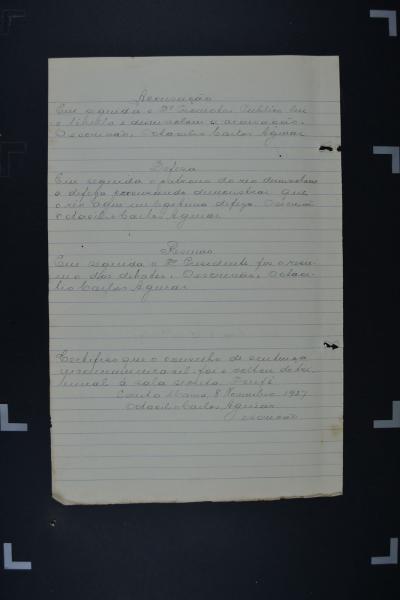 Accusação
Em seguida o Dr Promotor Publico leu
o libello e desenvolveu a accusação.
O escrivão, Octacilio Carlos Aguiar
Defesa
Em seguida o patrono do reo desenvolveu
a defesa procurando demonstrar que
o reo agiu em legitima defesa. O escrivão
Octacilio Carlos Aguiar
Resumo
Em seguida o Dr Presidente fez o resu-
mo dos debates. O escrivão, Octaci-
lio Carlos Aguiar
Certifico que o conselho de sentença
foi e voltou do tri-
bunal á sala secreta. Dou fé
Santa Maria, 8 Novembro 1927
Octacilio Carlos Aguiar
O escrivão